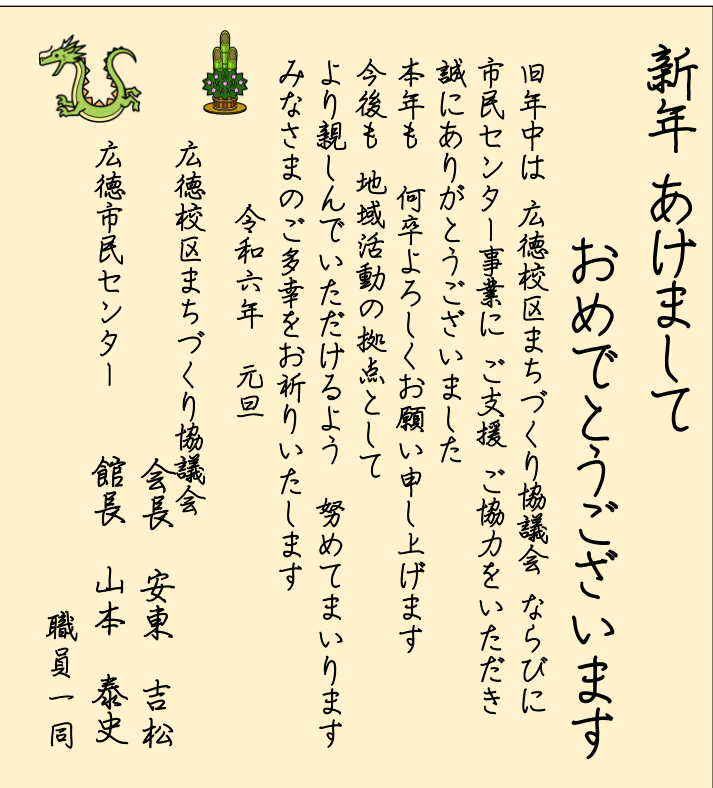 新年 あけまして
おめでとうございます
旧年中は 広徳校区まちづくり協議会 ならびに
市民センター事業に ご支援 ご協力をいただき
誠にありがとうございました
本年も 何卒よろしくお願い申し上げます
今後も 地域活動の拠点として
より親しんでいただけるよう 努めてまいります
みなさまのご多幸をお祈りいたします
令和六年 元旦
広徳校区まちづくり協議会
会長 安東 吉松
広徳市民センター
館長 山本 泰史
職員一同